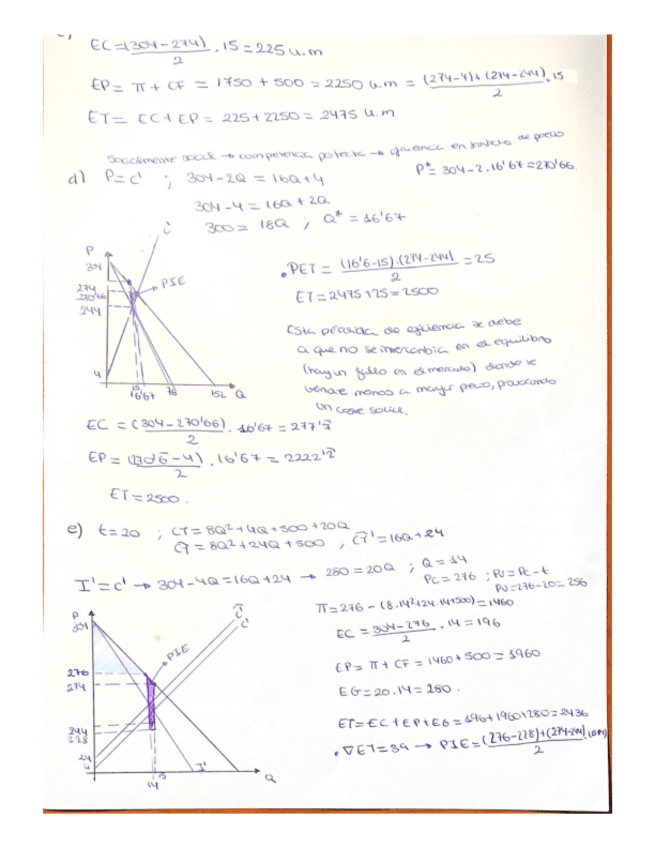 c)
EC = (304-274)/2 · 15 = 225 u.m
EP = π + CF = 1750 + 500 = 2250 u.m = (274-4)+(244-244)/2 · 15
ET = EC + EP = 225 + 2250 = 2475 u.m
→ competencia perfecta → eficiencia en
d) P = c' ; 304-2Q = 16Q+4
P* = 304-2·16'67 = 270'66.
304-4 = 16Q + 2Q
300 = 18Q ; Q* = 16'67
c'
P
304
274
270'66
244
4
PIE
15
16'67
76
152
Q
• PET = (16'6-15)·(274-244)/2 = 25
ET = 2475+25 = 2500
Esta pérdida de eficiencia se debe
a que no se intercambia en el equilibrio
(hay un fallo en el mercado) donde se
vende menos a mayor precio, provocando
un coste social.
EC = (304-270'66)/2 · 16'67 = 277'7
EP = (270'6-4)/2 · 16'67 = 2222'2
ET = 2500.
e) t=20 ; CT = 8Q²+4Q+500+20Q
CT = 8Q²+24Q+500 ; CT' = 16Q+24
I' = c' → 304-4Q = 16Q+24 → 280 = 20Q ; Q = 14
Pc = 276 ; Pv = Pc-t
Pv = 276-20 = 256
P
304
276
274
244
228
24
4
PIE
c'
c'
I'
14
15
Q
π = 276-(8·14²+24·14+500) = 1460
EC = 304-276/2 · 14 = 196
EP = π + CF = 1460+500 = 1960
EG = 20·14 = 280.
ET = EC+EP+EG = 196+1960+280 = 2436
• ∇ET = 39 → PIE = (276-228)+(274-244)/2